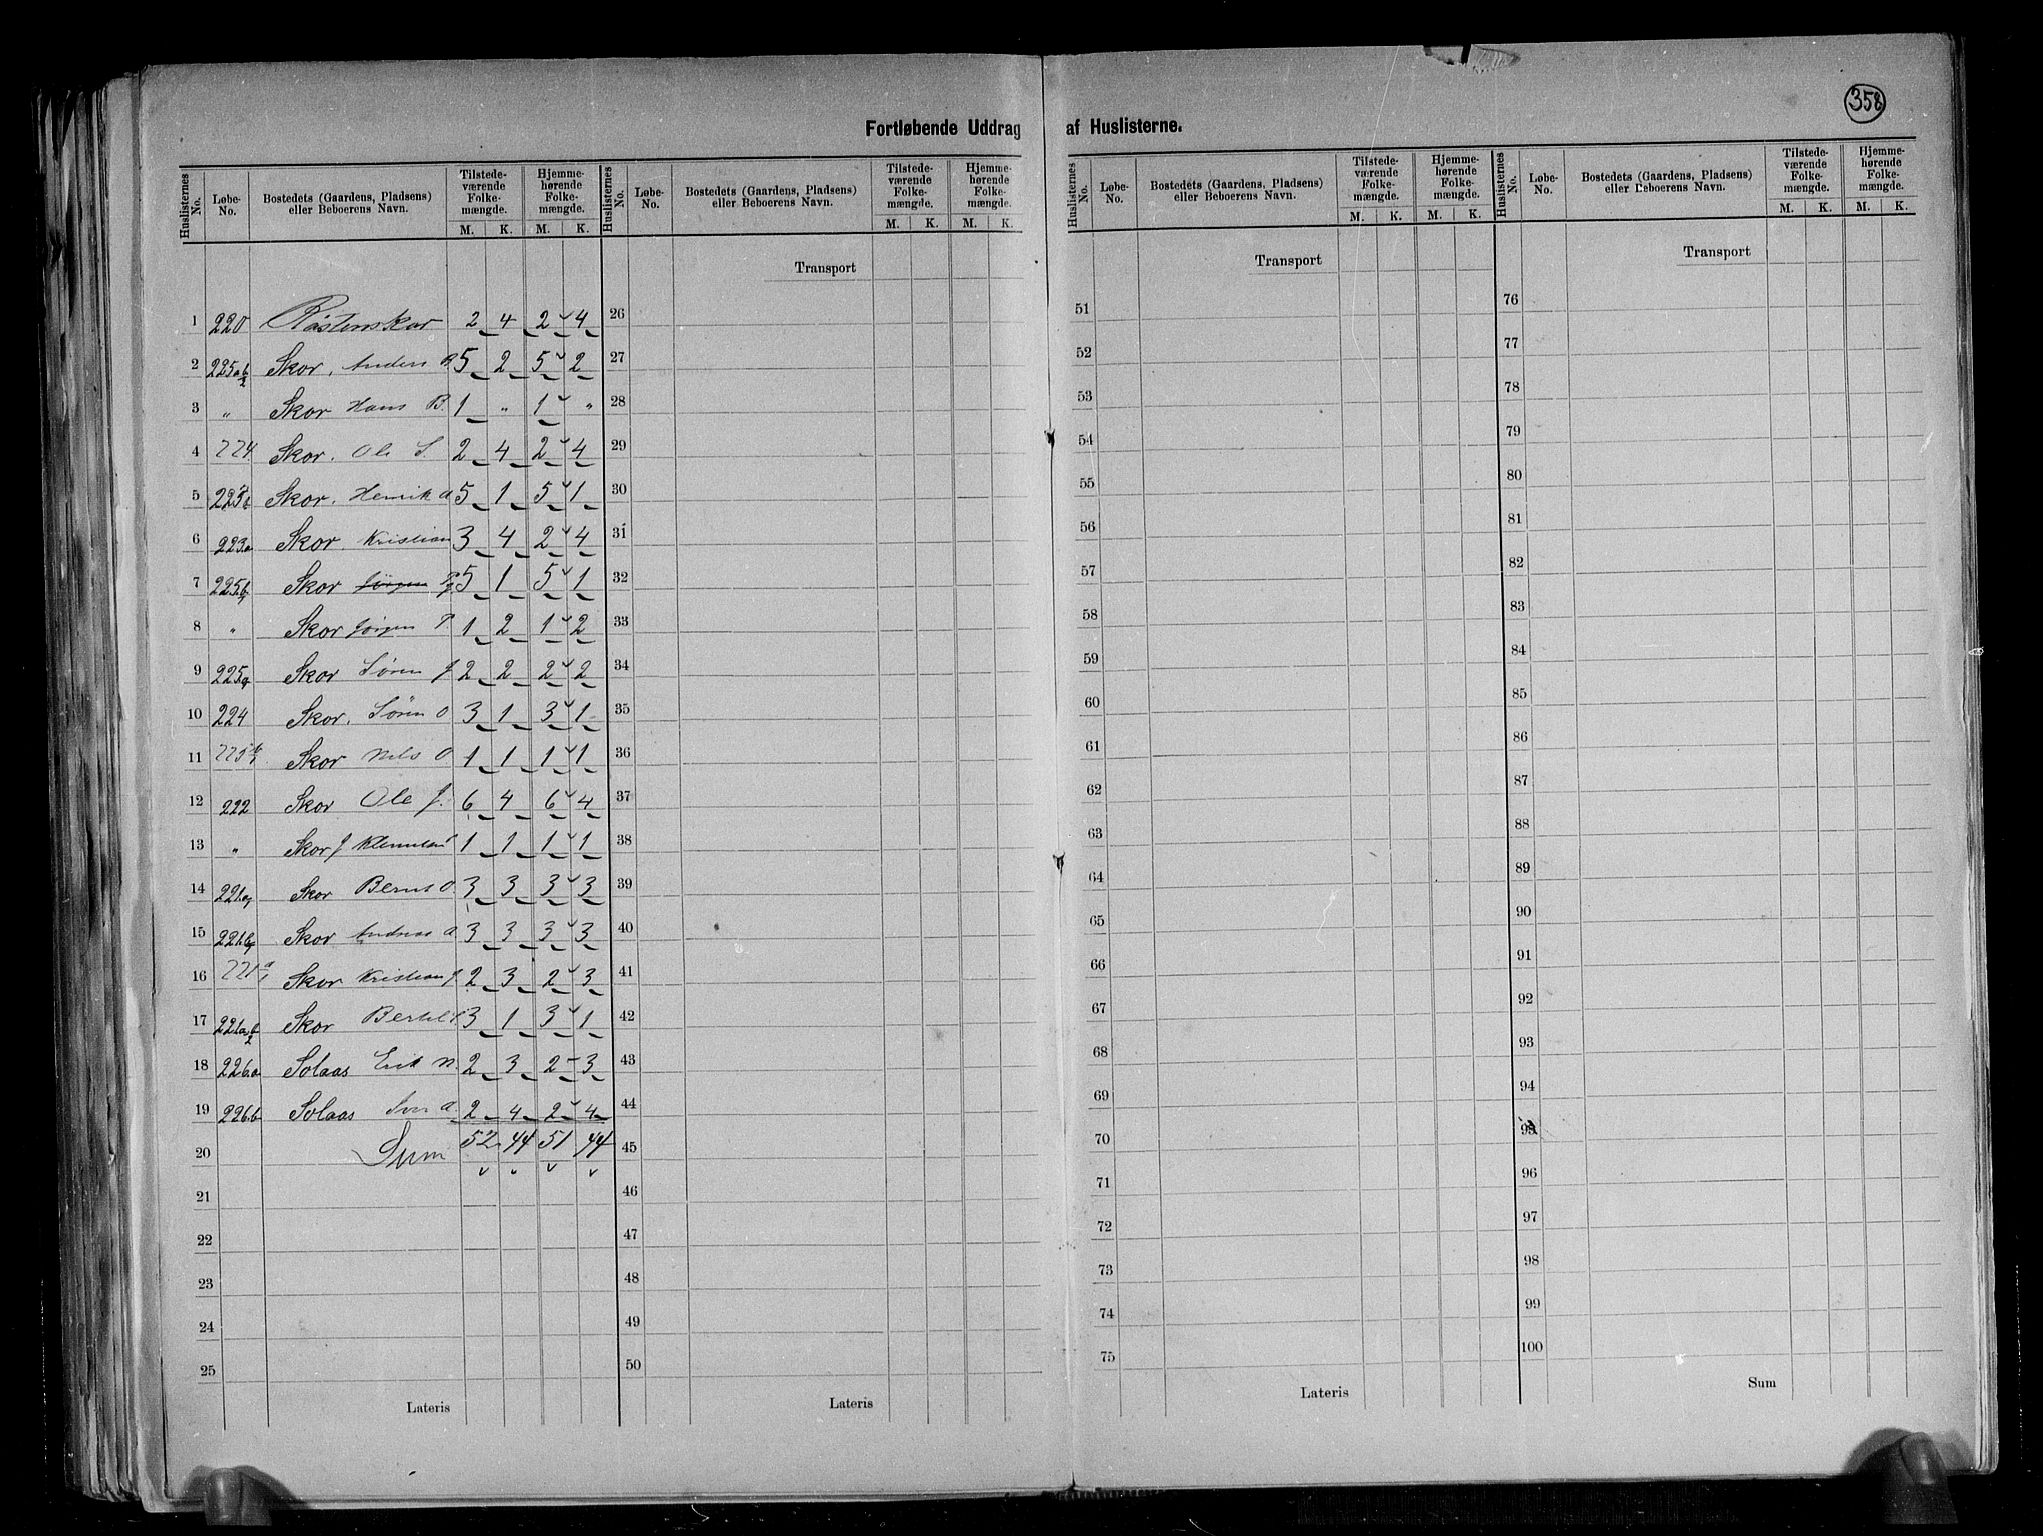 358
Fortløbende Uddrag af Huslisterne.
Huslisternes No. Løbe-No. Bostedets (Gaardens, Pladsens) eller Beboerens Navn. Tilstede-værende Folke-mængde. M. K. Hjemme-hørende Folke-mængde. M. K.
Huslisternes No. Løbe-No. Bostedets (Gaardens, Pladsens) eller Beboerens Navn. Tilstede-værende Folke-mængde. M. K. Hjemme-hørende Folke-mængde. M. K.
Huslisternes No. Løbe-No. Bostedets (Gaardens, Pladsens) eller Beboerens Navn. Tilstede-værende Folke-mængde. M. K. Hjemme-hørende Folke-mængde. M. K.
Huslisternes No. Løbe-No. Bostedets (Gaardens, Pladsens) eller Beboerens Navn. Tilstede-værende Folke-mængde. M. K. Hjemme-hørende Folke-mængde. M. K.
Transport Transport Transport
1 220 Røstenskar 2 4 2 4 26 51 76
2 225 Skor. Anders 5 2 5 2 27 52 77
3 " Skor Hans B. 1 " 1 " 28 53 78
4 224 Skor. Ole S. 2 4 2 4 29 54 79
5 223b Skor. Henrik A 5 1 5 1 30 55 80
6 223a Skor. Kristian 3 4 2 4 31 56 81
7 225b Skor Jörgen 5 1 5 1 32 57 82
8 " Skor Jörgen P. 1 2 1 2 33 58 83
9 225a Skor Sören J 2 2 2 2 34 59 84
10 224 Skor. Sören O 3 1 3 1 35 60 85
11 225 Skor Nils O 1 1 1 1 36 61 86
12 222 Skor Ole J. 6 4 6 4 37 62 87
13 " Skor J 1 1 1 1 38 63 88
14 221 Skor Bernt O. 3 3 3 3 39 64 89
15 221 Skor Andreas A. 3 3 3 3 40 65 90
16 221 Skor Kristian J. 2 3 2 3 41 66 91
17 221 Skor Bertel 3 1 3 1 42 67 92
18 226a Solaas Erik N. 2 3 2 3 43 68 93
19 226b Solaas A. 2 4 2 4 44 69 94
20 Sum 52 44 51 44 45 70 95
21 46 71 96
22 47 72 97
23 48 73 98
24 49 74 99
25 50 75 100
Lateris Lateris Lateris Sum